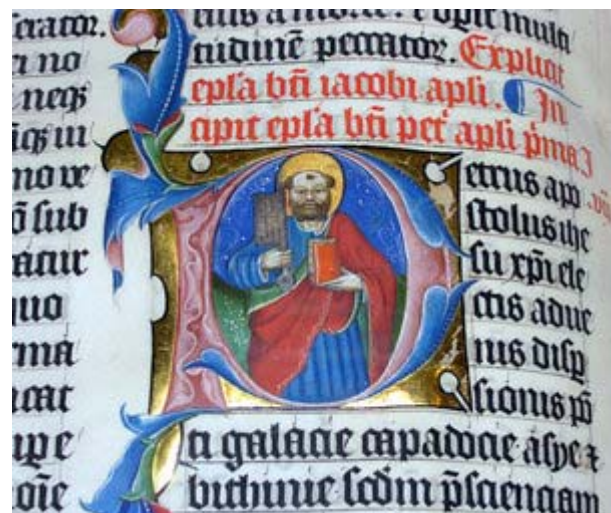 serator.
neqȝ
no ve
õ sub
quo
eius a morte. & opit multi
tudinē peccator. Explicit
epl̃a bt̃i iacobi apl̃i. In
cipit epl̃a bt̃i pet' apl̃i p̃ma
etrus apo
stolus ihe
su xp̃i ele
ctis adue
nis disp̃
sionis põ
ti galacie capadocie asye ⁊
bithinie scd̃m p̃scienciam